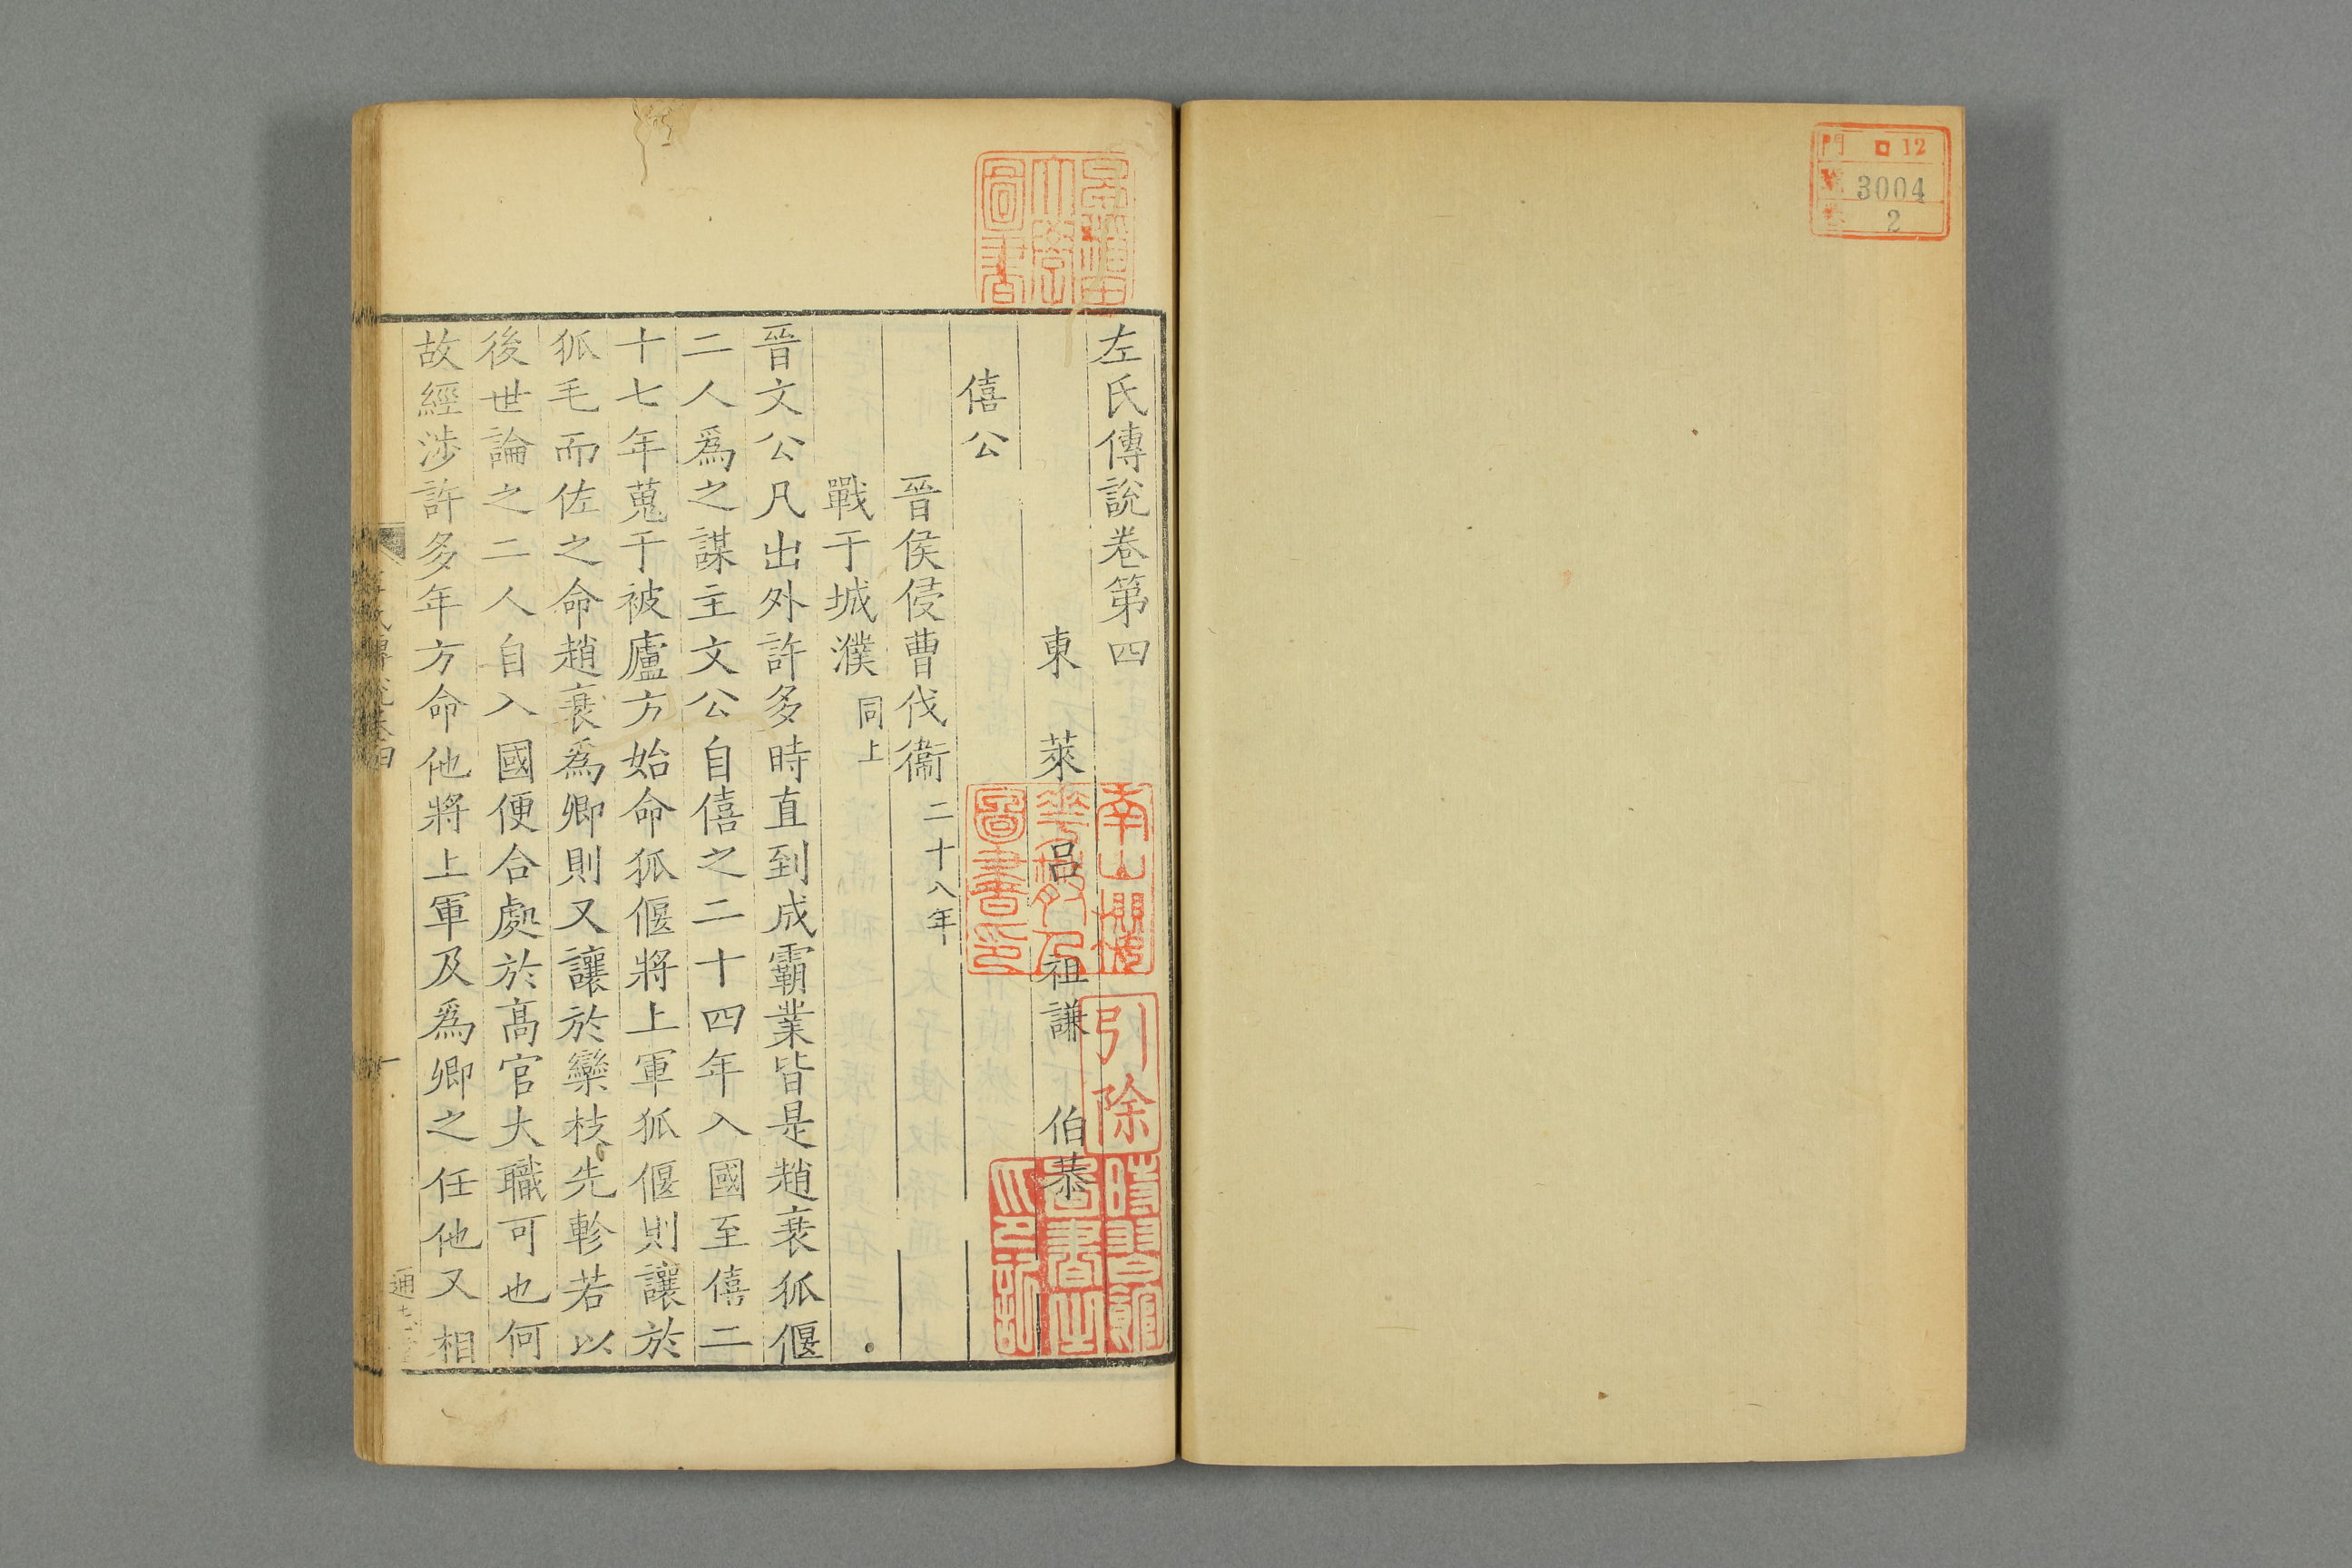 門 ロ 12
號 3004
卷 2
左氏傳說卷第四
東萊呂祖謙伯恭
僖公
晉侯侵曹伐衞二十八年
戰于城濮同上
晉文公凡出外許多時直到成霸業皆是趙衰狐偃
二人爲之謀主文公自僖之二十四年入國至僖二
十七年蒐于被廬方始命狐偃將上軍狐偃則讓於
狐毛而佐之命趙衰爲卿則又讓於欒枝先軫若以
後世論之二人自入國便合處於高官大職可也何
故經涉許多年方命他將上軍及爲卿之任他又相
左氏傳說卷四
一
通志堂
早稻田大學圖書
圖書印
引除
時習館圖書之印記